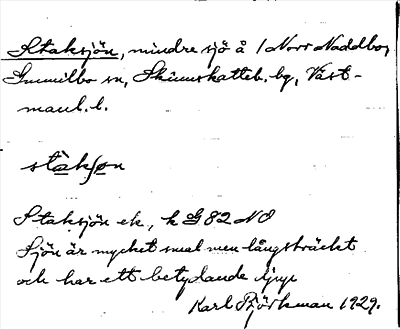 Staksjön, mindre sjö å / Norr Naddbo,
Gunnilbo sn, Skinnskatteb. bg, Väst-
manl. l.
stàksøn
Staksjön ek, k G 82 NO
Sjön är mycket smal men långsträckt
och har ett betydande djup
Karl Björkman 1929.